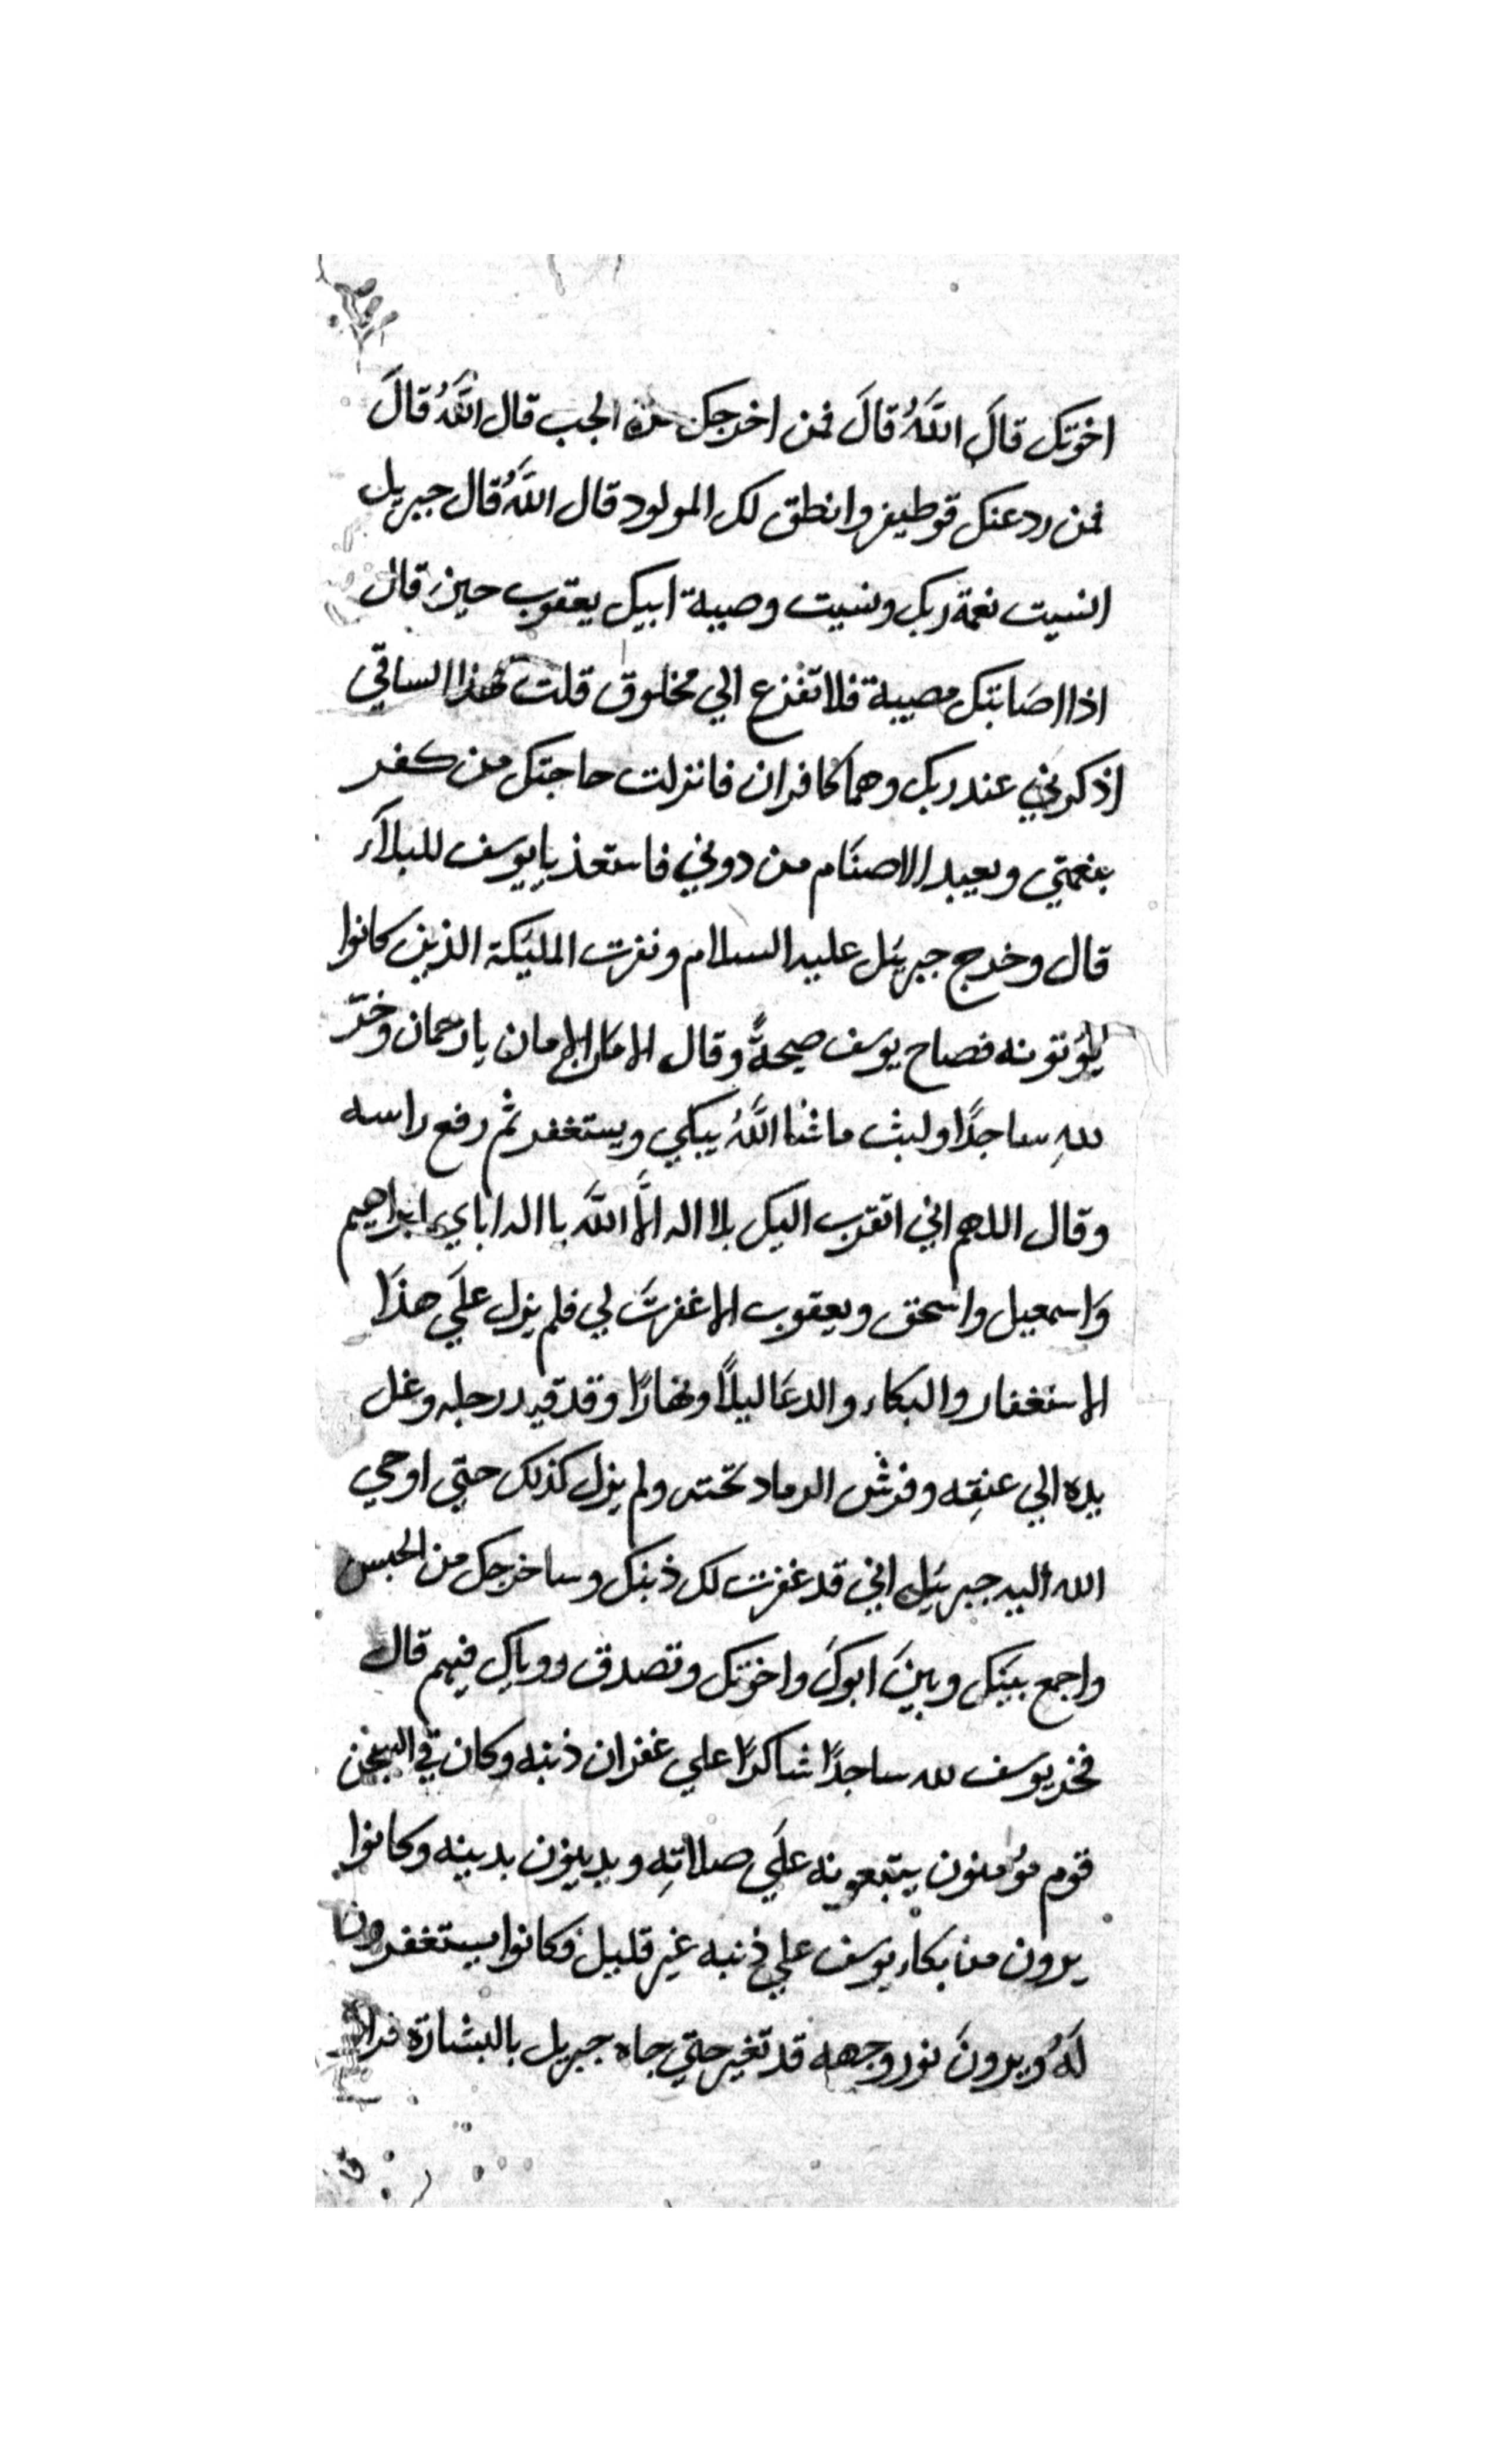 اخوتك قالَ اللَّهُ قالَ فمن اخرجك من الجب قال اللَّهُ قالَ
فمن رد عنك قوطيفر وانطق لك المولود قال اللَّهُ قال جبريل
انسيت نعمة ربك ونسيت وصية ابيك يعقوب حين قال
اذا اصَابتك مصيبة فلا تفزع الي مخلوق قلت لهذا الساقي
اذكرني عند ربك وهما كافران فانزلت حاجتك من كفر
بنعمتي ويعبد الاصنَام من دوني فاستعذ يا يوسف للبلآء
قال وخرج جبريَل عليه السلام ونفرت المليَكة الذين كانوا
يؤنونه فصاح يوسف صيحةً وقال الامَان الامان يا رحمان وخرّ
للهِ ساجدًا ولبث ما شا اللَّهُ يبكي ويستغفر ثم رفع راسه
وقال اللهم اني اتقرب اليك بلا اله الَّا اللَّه يا اله اباي ابراهيم
وَاسمعيل واسحق ويعقوب الا غفرتَ لي فلم يزل علَي هذَا
الاستغفار والبكاء والدعَا ليلًا ونهارًا وقد قيد رجله وغل
يده الي عنِقه وفرش الرماد تحته ولم يزل كذلك حتي اوحي
الله اليه جبريَل اني قد غفرت لك ذنبك وساخرجك من الحبس
واجمع بيَنك وبينَ ابوكَ واخوتك وتصدق روياك فيهم قال
فخر يوسف لله ساجدًا شاكرًا علي غفران ذنبه وكان في السجن
قوم مؤمنون يتبعونه علَي صلاتِه ويدينون بدينه وكانوا
يرون من بكاء يوسف علي ذنبه غير قليل فكانوا يستغفرون
لَهُ ويرونَ نور وجهه قد تغير حتي جاه جبريل بالبشارة